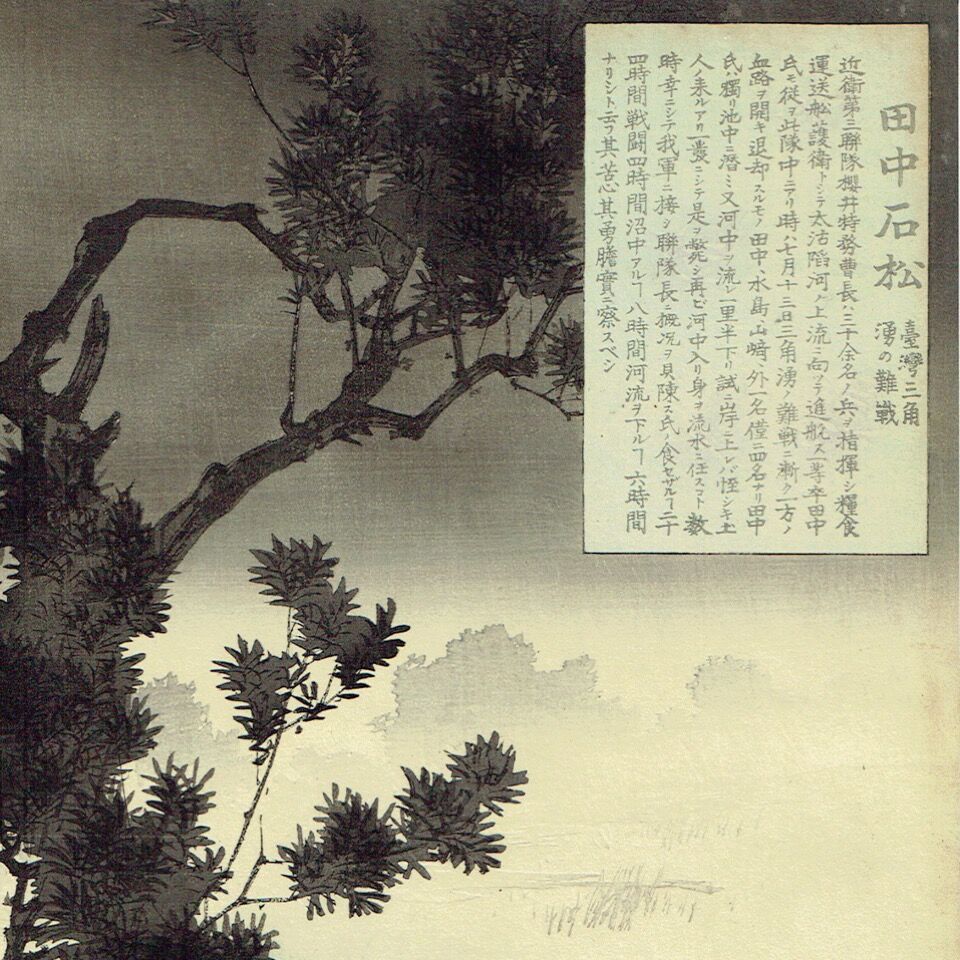 田中石松
臺灣三角
湧の難戰
近衛第三聯隊櫻井特務曹長ハ三十余名ノ兵ヲ指揮シ糧食
運送舩護衛トシテ太沽陷河ノ上流ニ向ツテ進航ス一等卒田中
氏モ従ヲ此隊中ニアリ時ハ七月十三日三角湧ノ難戰ニ漸ク一方ノ
血路ヲ開キ退却スルモノ田中、水島、山﨑、外一名僅ニ四名ナリ田中
氏ハ獨リ池中ニ潜ミ又河中ヲ流レ一里半下リ試ニ岸ニ上レバ怪シキ土
人ノ来ルアリ一蕞ニシテ是ヲ斃シ再ビ河中入リ身ヲ流水ニ任スコト数
時幸ニシテ我軍ニ接シ聯隊長ニ概況ヲ具陳ス氏ノ食セザルヿ二十
四時間戦闘四時間沼中アルヿ八時間河流ヲ下ルヿ六時間
ナリシト云フ其苦心其勇膽實ニ察スベシ